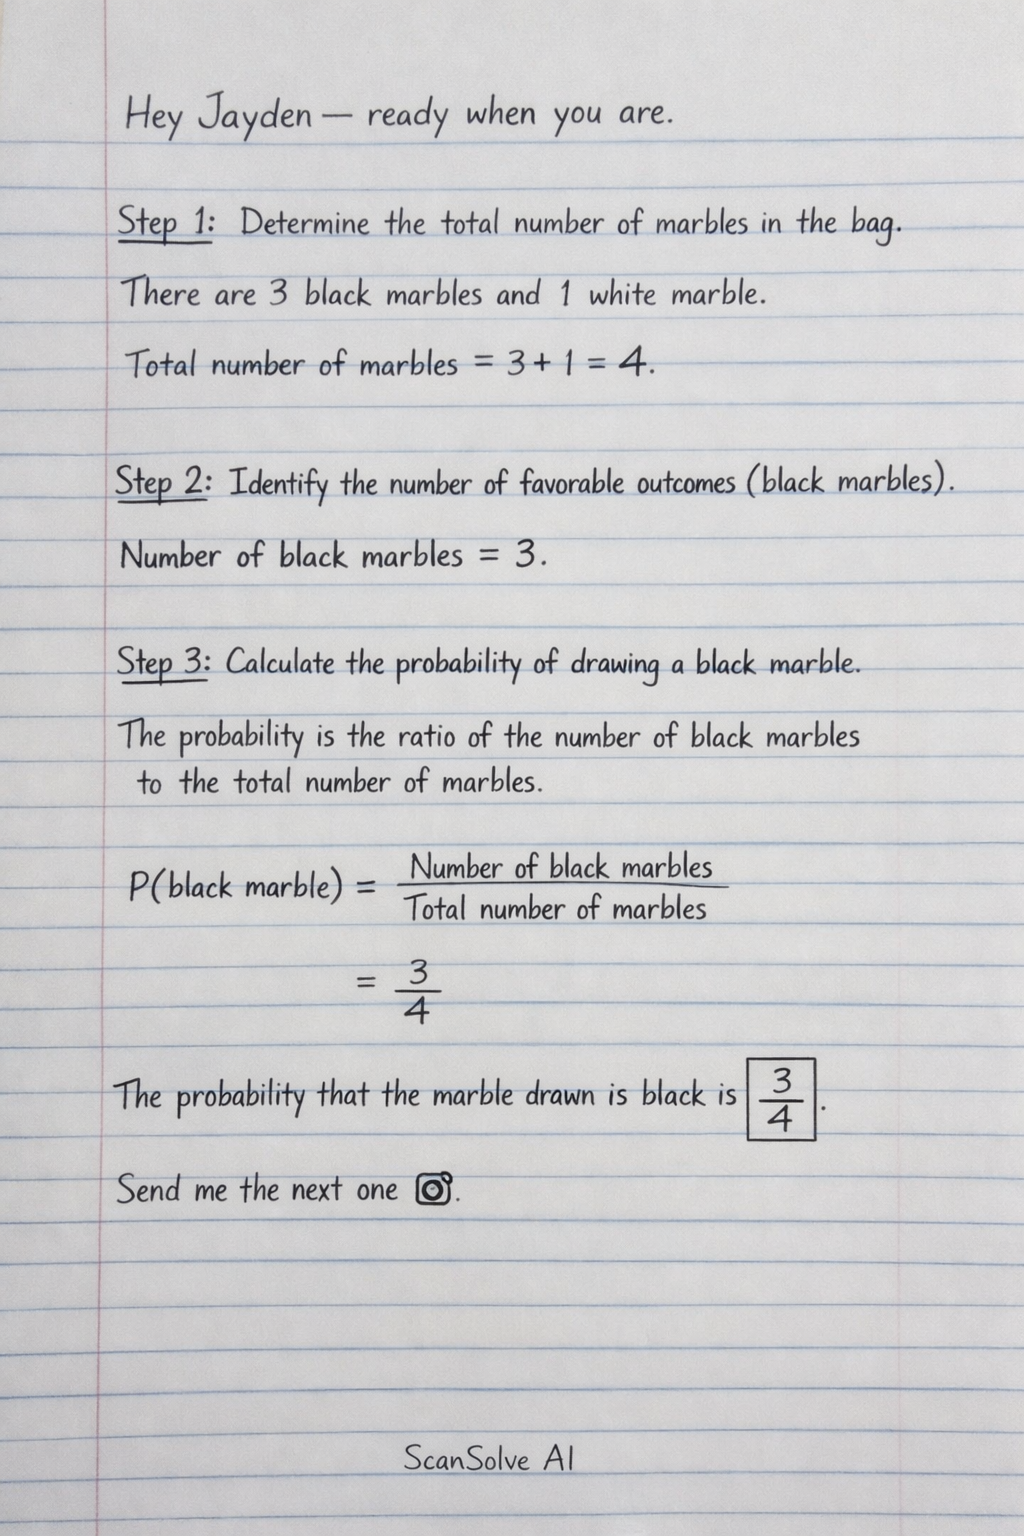 Hey Jayden — ready when you are.
Step 1: Determine the total number of marbles in the bag.
There are 3 black marbles and 1 white marble.
Total number of marbles = 3 + 1 = 4.
Step 2: Identify the number of favorable outcomes (black marbles).
Number of black marbles = 3.
Step 3: Calculate the probability of drawing a black marble.
The probability is the ratio of the number of black marbles
to the total number of marbles.
P(black marble) = Number of black marbles / Total number of marbles
= 3/4
The probability that the marble drawn is black is 3/4.
Send me the next one 📷.
ScanSolve AI